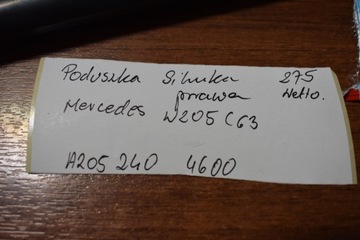 Poduszka Silnika 275
prawa Netto.
Mercedes W205 C63
A205 240 4600